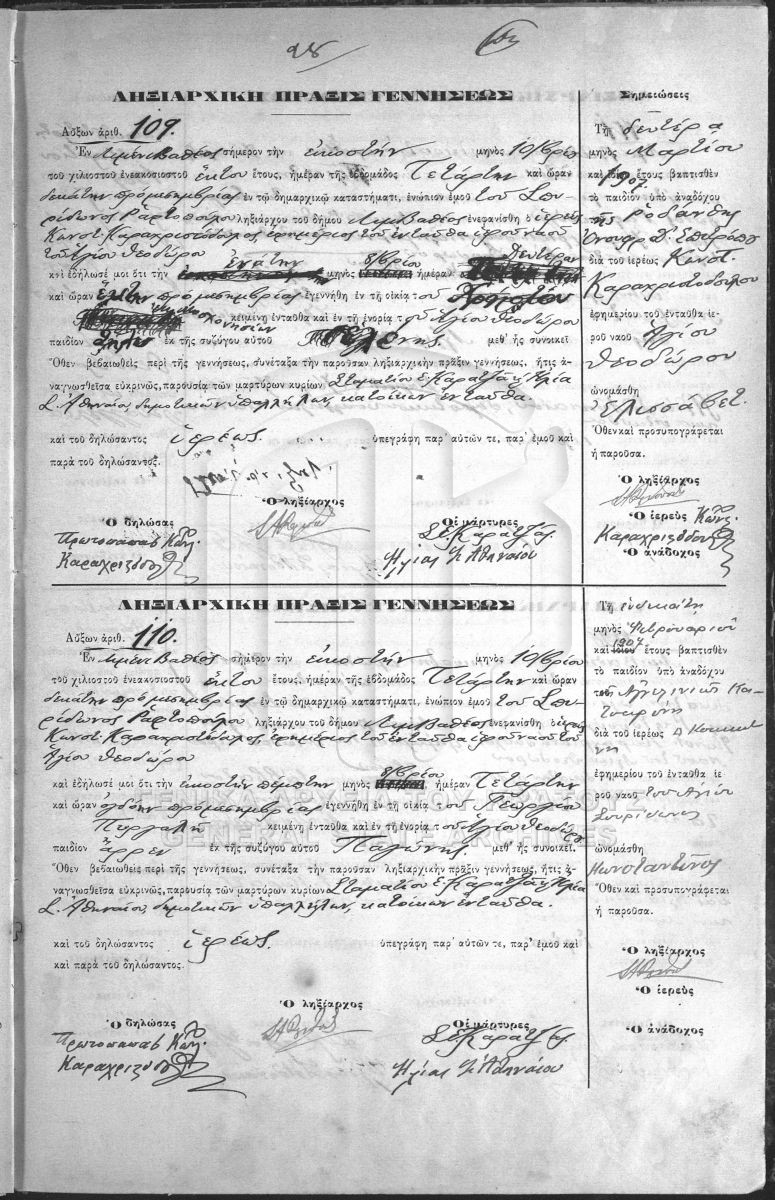 ΛΗΞΙΑΡΧΙΚΗ ΠΡΑΞΙΣ ΓΕΝΝΗΣΕΩΣ
Αὔξων ἀριθ. 109.
Ἐν Λιμένι Βαθέος σήμερον τὴν εἰκοστὴν μηνὸς 10/βρίου
τοῦ χιλιοστοῦ ἐνεακοσιοστοῦ ἕκτου ἔτους, ἡμέραν τῆς ἑβδομάδος Τετάρτην καὶ ὥραν
δεκάτην πρὸ μεσημβρίας ἐν τῷ δημαρχικῷ καταστήματι, ἐνώπιον ἐμοῦ τοῦ Σπυ-
ρίδωνος Ραφτοπούλου ληξιάρχου τοῦ δήμου Λιμ. Βαθέος ἐνεφανίσθη ὁ ἱερεὺς
Κωνστ. Καραχριστόδουλος, ἐφημέριος τοῦ ἐνταῦθα ἱεροῦ ναοῦ
τοῦ Ἁγίου Θεοδώρου
καὶ ἐδήλωσέ μοι ὅτι τὴν ἐνάτην μηνὸς 8/βρίου ἡμέραν Δευτέραν
καὶ ὥραν ἕκτην πρὸ μεσημβρίας ἐγεννήθη ἐν τῇ οἰκίᾳ τοῦ Χρήστου
κειμένῃ ἐνταῦθα καὶ ἐν τῇ ἐνορίᾳ τοῦ Ἁγίου Θεοδώρου
παιδίον θῆλυ ἐκ τῆς συζύγου αὐτοῦ μεθ' ἧς συνοικεῖ.
Ὅθεν βεβαιωθεὶς περὶ τῆς γεννήσεως, συνέταξα τὴν παροῦσαν ληξιαρχικὴν πρᾶξιν γεννήσεως, ἥτις ἀ-
ναγνωσθεῖσα εὐκρινῶς, παρουσίᾳ τῶν μαρτύρων κυρίων Σταματίου Ε. Καρατζᾶ κ. Ἠλία
Σ. Ἀθηναίου, δημοτικῶν ὑπαλλήλων, κατοίκων ἐνταῦθα.
καὶ τοῦ δηλώσαντος ἱερέως. ὑπεγράφη παρ' αὐτῶν τε, παρ' ἐμοῦ καὶ
παρὰ τοῦ δηλώσαντος.
Ὁ ληξίαρχος
Ὁ δηλώσας Οἱ μάρτυρες
Πρωτοπαπᾶς Κων.
Καραχριστόδουλος
Σ. Ε. Καρατζᾶς
Ἠλίας Σ. Ἀθηναίου
Σημειώσεις
Τῇ δευτέρᾳ
μηνὸς Μαρτίου
καὶ 1907 ἔτους βαπτισθὲν
τὸ παιδίον ὑπὸ ἀναδόχου
τῆς Ροδάνθης
διὰ τοῦ ἱερέως Κωνστ.
Καραχριστοδούλου
ἐφημερίου τοῦ ἐνταῦθα ἱε-
ροῦ ναοῦ Ἁγίου
Θεοδώρου
ὠνομάσθη
Ἐλισσάβετ.
Ὅθεν καὶ προσυπογράφεται
ἡ παροῦσα.
Ὁ ληξίαρχος
Ὁ ἱερεὺς Κων.
Καραχριστόδουλος
Ὁ ἀνάδοχος
ΛΗΞΙΑΡΧΙΚΗ ΠΡΑΞΙΣ ΓΕΝΝΗΣΕΩΣ
Αὔξων ἀριθ. 110.
Ἐν Λιμένι Βαθέος σήμερον τὴν εἰκοστὴν μηνὸς 10/βρίου
τοῦ χιλιοστοῦ ἐνεακοσιοστοῦ ἕκτου ἔτους, ἡμέραν τῆς ἑβδομάδος Τετάρτην καὶ ὥραν
δεκάτην πρὸ μεσημβρίας ἐν τῷ δημαρχικῷ καταστήματι, ἐνώπιον ἐμοῦ τοῦ Σπυ-
ρίδωνος Ραφτοπούλου ληξιάρχου τοῦ δήμου Λιμ. Βαθέος ἐνεφανίσθη ὁ ἱερεὺς
Κωνστ. Καραχριστόδουλος, ἐφημέριος τοῦ ἐνταῦθα ἱεροῦ ναοῦ τοῦ
Ἁγίου Θεοδώρου
καὶ ἐδήλωσέ μοι ὅτι τὴν εἰκοστὴν πέμπτην μηνὸς 8/βρίου ἡμέραν Τετάρτην
καὶ ὥραν ὀγδόην πρὸ μεσημβρίας ἐγεννήθη ἐν τῇ οἰκίᾳ τοῦ Γεωργίου
Πιργαλῆ κειμένῃ ἐνταῦθα καὶ ἐν τῇ ἐνορίᾳ τοῦ Ἁγίου Θεοδώρου
παιδίον ἄρρεν ἐκ τῆς συζύγου αὐτοῦ Παγώνης μεθ' ἧς συνοικεῖ.
Ὅθεν βεβαιωθεὶς περὶ τῆς γεννήσεως, συνέταξα τὴν παροῦσαν ληξιαρχικὴν πρᾶξιν γεννήσεως, ἥτις ἀ-
ναγνωσθεῖσα εὐκρινῶς, παρουσίᾳ τῶν μαρτύρων κυρίων Σταματίου Ε. Καρατζᾶ κ. Ἠλία
Σ. Ἀθηναίου, δημοτικῶν ὑπαλλήλων, κατοίκων ἐνταῦθα.
καὶ τοῦ δηλώσαντος ἱερέως. ὑπεγράφη παρ' αὐτῶν τε, παρ' ἐμοῦ καὶ
καὶ παρὰ τοῦ δηλώσαντος.
Ὁ ληξίαρχος
Ὁ δηλώσας Οἱ μάρτυρες
Πρωτοπαπᾶς Κων.
Καραχριστόδουλος
Σ. Ε. Καρατζᾶς
Ἠλίας Σ. Ἀθηναίου
Τῇ ἑνδεκάτῃ
μηνὸς Φεβρουαρίου
καὶ 1907 ἔτους βαπτισθὲν
τὸ παιδίον ὑπὸ ἀναδόχου
διὰ τοῦ ἱερέως
ἐφημερίου τοῦ ἐνταῦθα ἱε-
ροῦ ναοῦ τοῦ Ἁγίου
Σπυρίδωνος
ὠνομάσθη
Κωνσταντῖνος
Ὅθεν καὶ προσυπογράφεται
ἡ παροῦσα.
Ὁ ληξίαρχος
Ὁ ἱερεὺς
Ὁ ἀνάδοχος
GENERAL STATE ARCHIVES